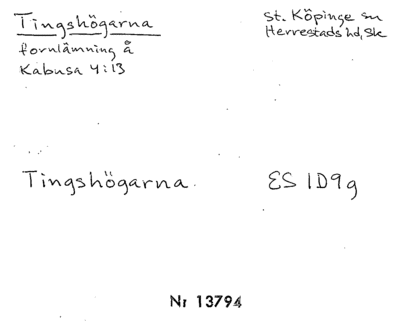 Tingshögarna
fornlämning å
Kabusa 4:13
St. Köpinge sn
Herrestads hd, Sk
Tingshögarna
ES 1D9g
Nr 13794